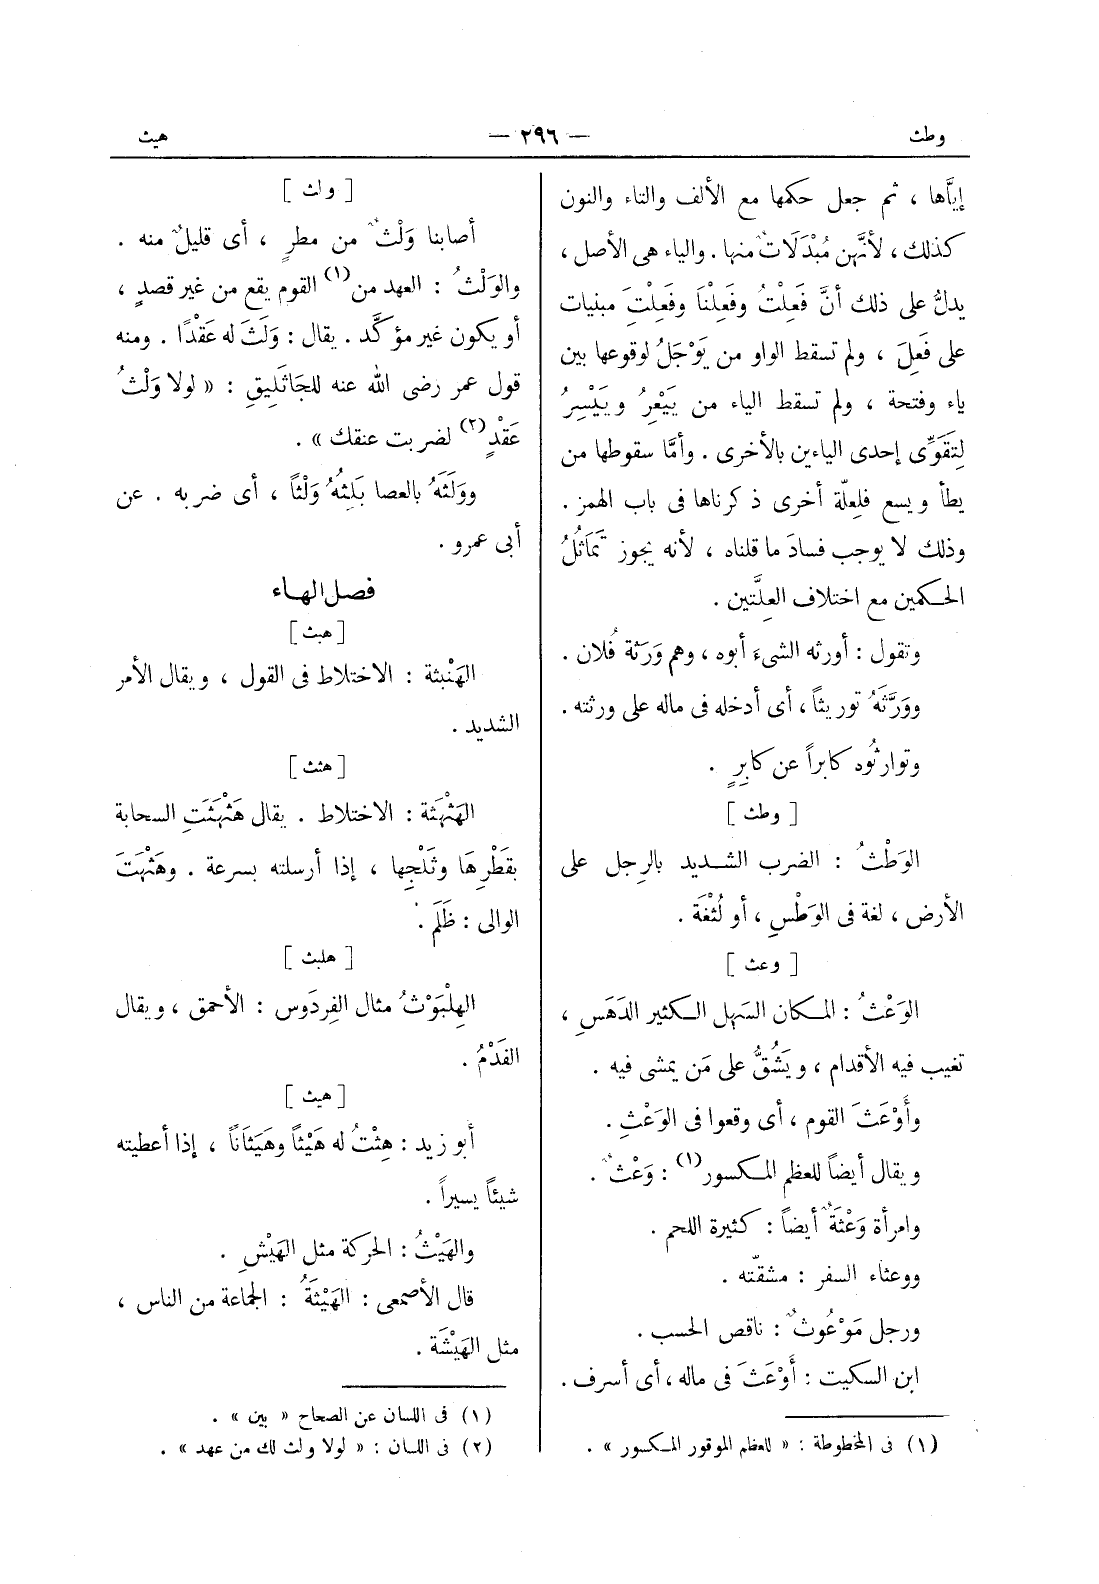 وطث — ٢٩٦ — هيث
إيَّاها ، ثم جعل حكمها مع الألف والتاء والنون
كذلك ، لأنَّهن مُبْدَلَاتٌ منها . والياء هى الأصل ،
يدلُّ على ذلك أنَّ فَعِلْتُ وفَعِلْنَا وفَعِلْتَِ مبنيات
على فَعِلَ ، ولم تسقط الواو من يَوْجَلُ لوقوعها بين
ياء وفتحة ، ولم تسقط الياء من يَيْعِرُ ويَيْسِرُ
لِتَقَوِّى إحدى الياءين بالأخرى . وأمَّا سقوطها من
يطأ ويسع فلِعلّة أخرى ذكرناها فى باب الهمز .
وذلك لا يوجب فسادَ ما قلناه ، لأنه يجوز تَمَاثُلُ
الحكمين مع اختلاف العِلَّتين .
وتقول : أورثه الشىءَ أبوه ، وهم وَرَثة فُلان .
ووَرَّثَهُ توريثاً ، أى أدخله فى ماله على ورثته .
وتوارثُوه كابراً عن كابِرٍ .
[ وطث ]
الوَطْثُ : الضرب الشديد بالرِجل على
الأرض ، لغة فى الوَطْسِ ، أو لُثْغَة .
[ وعث ]
الوَعْثُ : المكان السَهل الكثير الدَهَسِ ،
تغيب فيه الأقدام ، ويَشُقُّ على مَن يمشى فيه .
وأَوْعَثَ القوم ، أى وقعوا فى الوَعْثِ .
ويقال أيضاً للعظم المكسور(١) : وَعْثٌ .
وامرأة وَعْثَةٌ أيضاً : كثيرة اللحم .
ووعثاء السفر : مشقّته .
ورجل مَوْعُوثٌ : ناقص الحسب .
ابن السكيت : أَوْعَثَ فى ماله ، أى أسرف .
(١) فى المخطوطة : « للعظم الموقور المكسور » .
[ ولث ]
أصابنا وَلْثٌ من مطرٍ ، أى قليلٌ منه .
والوَلْثُ : العهد من(١) القوم يقع من غير قصدٍ ،
أو يكون غير مؤكَّد . يقال : وَلَثَ له عَقْدًا . ومنه
قول عمر رضى الله عنه للجَاثَلِيقِ : « لولا وَلْثُ
عَقْدٍ(٢) لضربت عنقك » .
ووَلَثَهُ بالعصا يَلِثُهُ وَلْثاً ، أى ضربه . عن
أبى عمرو .
فصل الهاء
[ هبث ]
الهَنْبثة : الاختلاط فى القول ، ويقال الأمر
الشديد .
[ هثث ]
الهَثْهَثة : الاختلاط . يقال هَثْهَثَتِ السحابة
بقَطْرِهَا وثَلْجِها ، إذا أرسلته بسرعة . وهَثْهَثَ
الوالى : ظَلَم .
[ هلبث ]
الهِلْبَوْثُ مثال الفِردَوس : الأحمق ، ويقال
الفَدْمُ .
[ هيث ]
أبو زيد : هِثْتُ له هَيْثاً وهَيَثَاناً ، إذا أعطيته
شيئاً يسيراً .
والهَيْثُ : الحركة مثل الهَيْشِ .
قال الأصمعى : الهَيْثَةُ : الجماعة من الناس ،
مثل الهَيْشَة .
(١) فى اللسان عن الصحاح « بين » .
(٢) فى اللسان : « لولا ولث لك من عهد » .